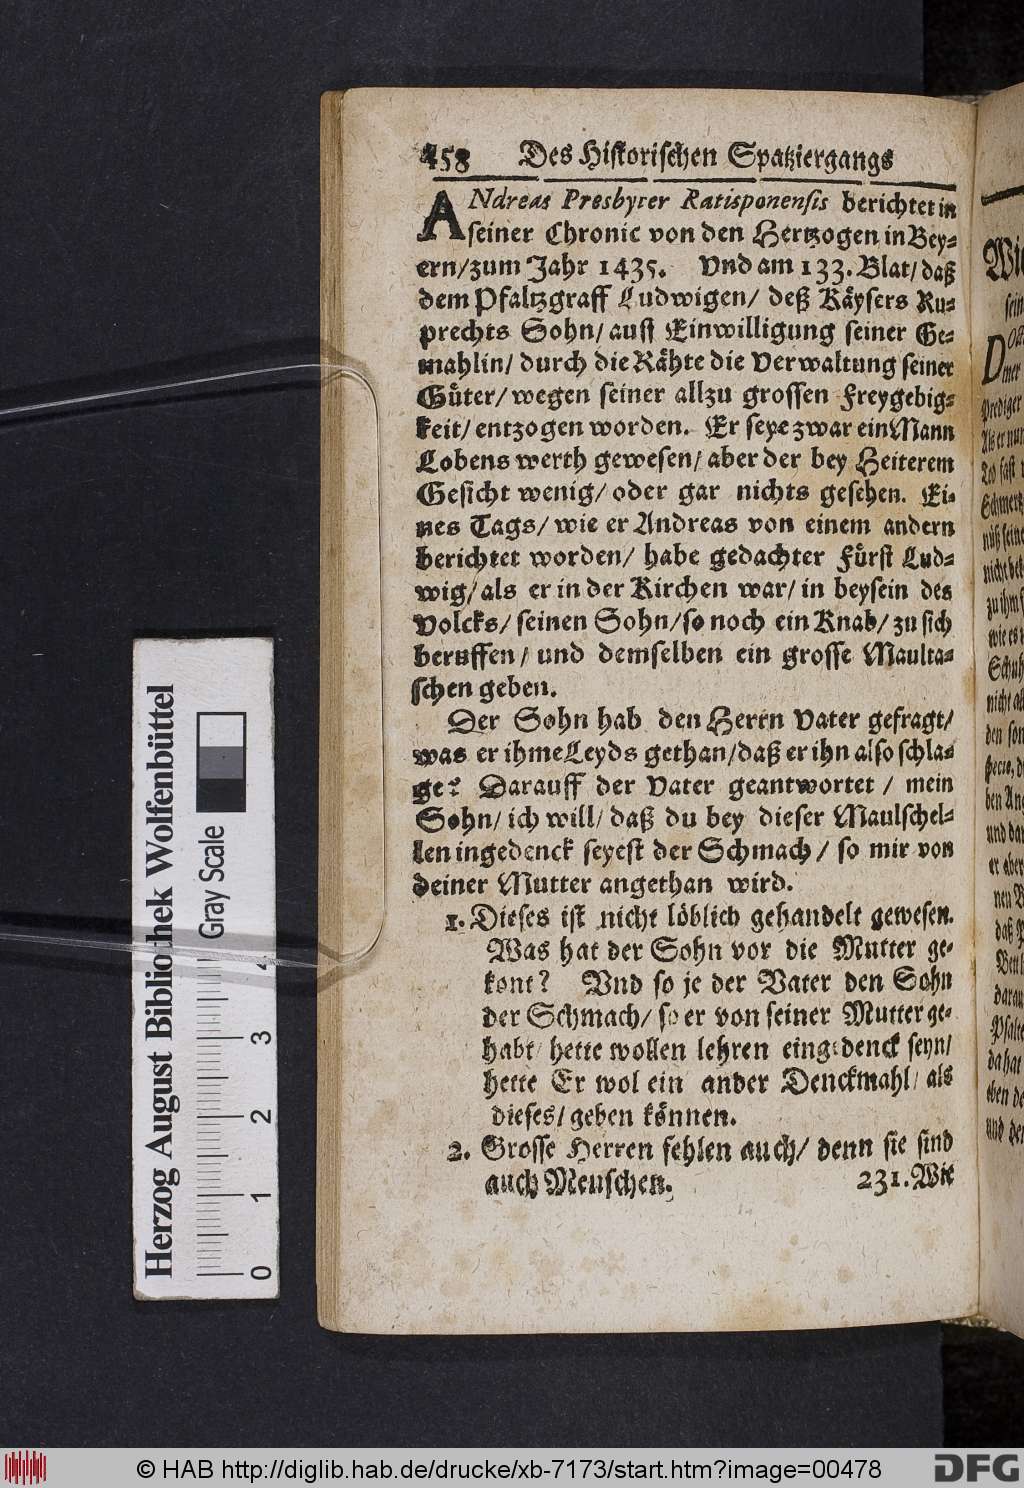 458 Des Historischen Spatziergangs
ANdreas Presbyter Ratisponensis berichtet in
seiner Chronic von den Hertzogen in Bey-
ern/ zum Jahr 1435. Vnd am 133. Blat/ daß
dem Pfaltzgraff Ludwigen/ deß Käysers Ru-
prechts Sohn/ auß Einwilligung seiner Ge-
mahlin/ durch die Rähte die Verwaltung seiner
Güter/ wegen seiner allzu grossen Freygebig-
keit/ entzogen worden. Er seye zwar ein Mann
Lobens werth gewesen/ aber der bey Heiterem
Gesicht wenig/ oder gar nichts gesehen. Ei-
nes Tags/ wie er Andreas von einem andern
berichtet worden/ habe gedachter Fürst Lud-
wig/ als er in der Kirchen war/ in beysein des
Volcks/ seinen Sohn/ so noch ein Knab/ zu sich
beruffen/ und demselben ein grosse Maulta-
schen geben.
Der Sohn hab den Herrn Vater gefragt/
was er ihme Leyds gethan/ daß er ihn also schla-
ge? Darauff der Vater geantwortet / mein
Sohn/ ich will/ daß du bey dieser Maulschel-
len ingedenck seyest der Schmach / so mir von
deiner Mutter angethan wird.
1. Dieses ist nicht löblich gehandelt gewesen.
Was hat der Sohn vor die Mutter ge-
kont? Vnd so je der Vater den Sohn
der Schmach/ so er von seiner Mutter ge-
habt/ hette wollen lehren eingedenck seyn/
hette Er wol ein ander Denckmahl/ als
dieses/ geben können.
2. Grosse Herren fehlen auch/ denn sie sind
auch Menschen. 231. Wie
Wie
sein
mer
Prediger
Als er nun
fast
Schmertz
seine
nicht
zu ihm
wie es
Schuh
nicht
den
ben
und
er aber
nen
daß
darau
Psalte
da hat
eben de
und der
Herzog August Bibliothek Wolfenbüttel
Gray Scale
0 1 2 3 4
© HAB http://diglib.hab.de/drucke/xb-7173/start.htm?image=00478
DFG